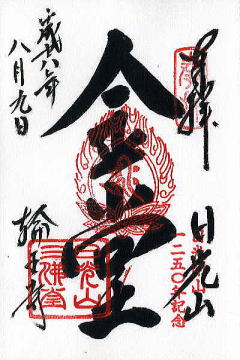 奉拝
日光山
二五〇年記念
金堂
八月九日
輪王寺
日光山
三佛堂